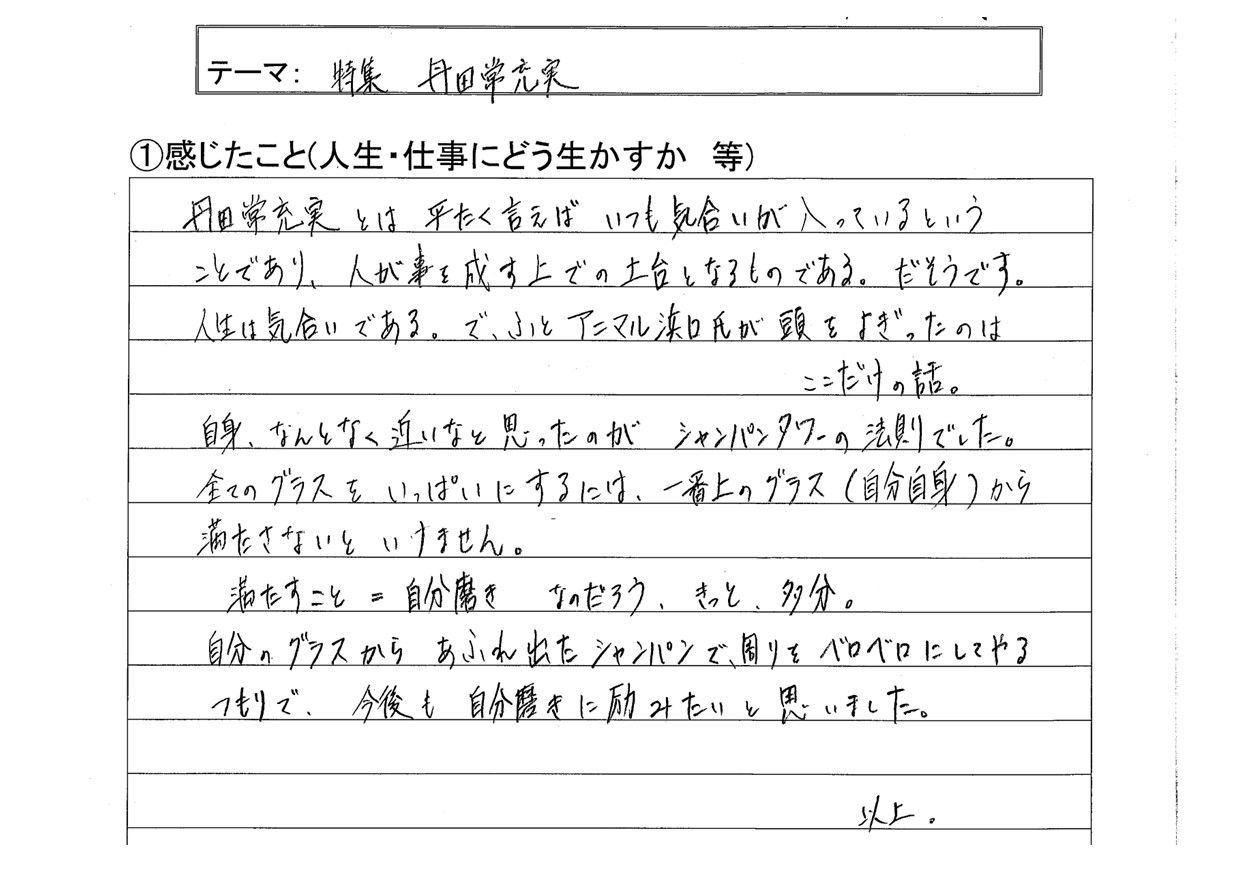 テーマ： 特集 丹田常充実
①感じたこと(人生・仕事にどう生かすか 等)
丹田常充実とは 平たく言えば いつも気合いが入っているという
ことであり、人が事を成す上での土台となるものである。だそうです。
人生は気合いである。で、ふとアニマル浜口氏が頭をよぎったのは
ここだけの話。
自身、なんとなく近いなと思ったのが シャンパンタワーの法則でした。
全てのグラスをいっぱいにするには、一番上のグラス(自分自身)から
満たさないといけません。
満たすこと = 自分磨き なのだろう、きっと、多分。
自分のグラスから あふれ出たシャンパンで、周りをベロベロにしてやる
つもりで、今後も自分磨きに励みたいと思いました。
以上。